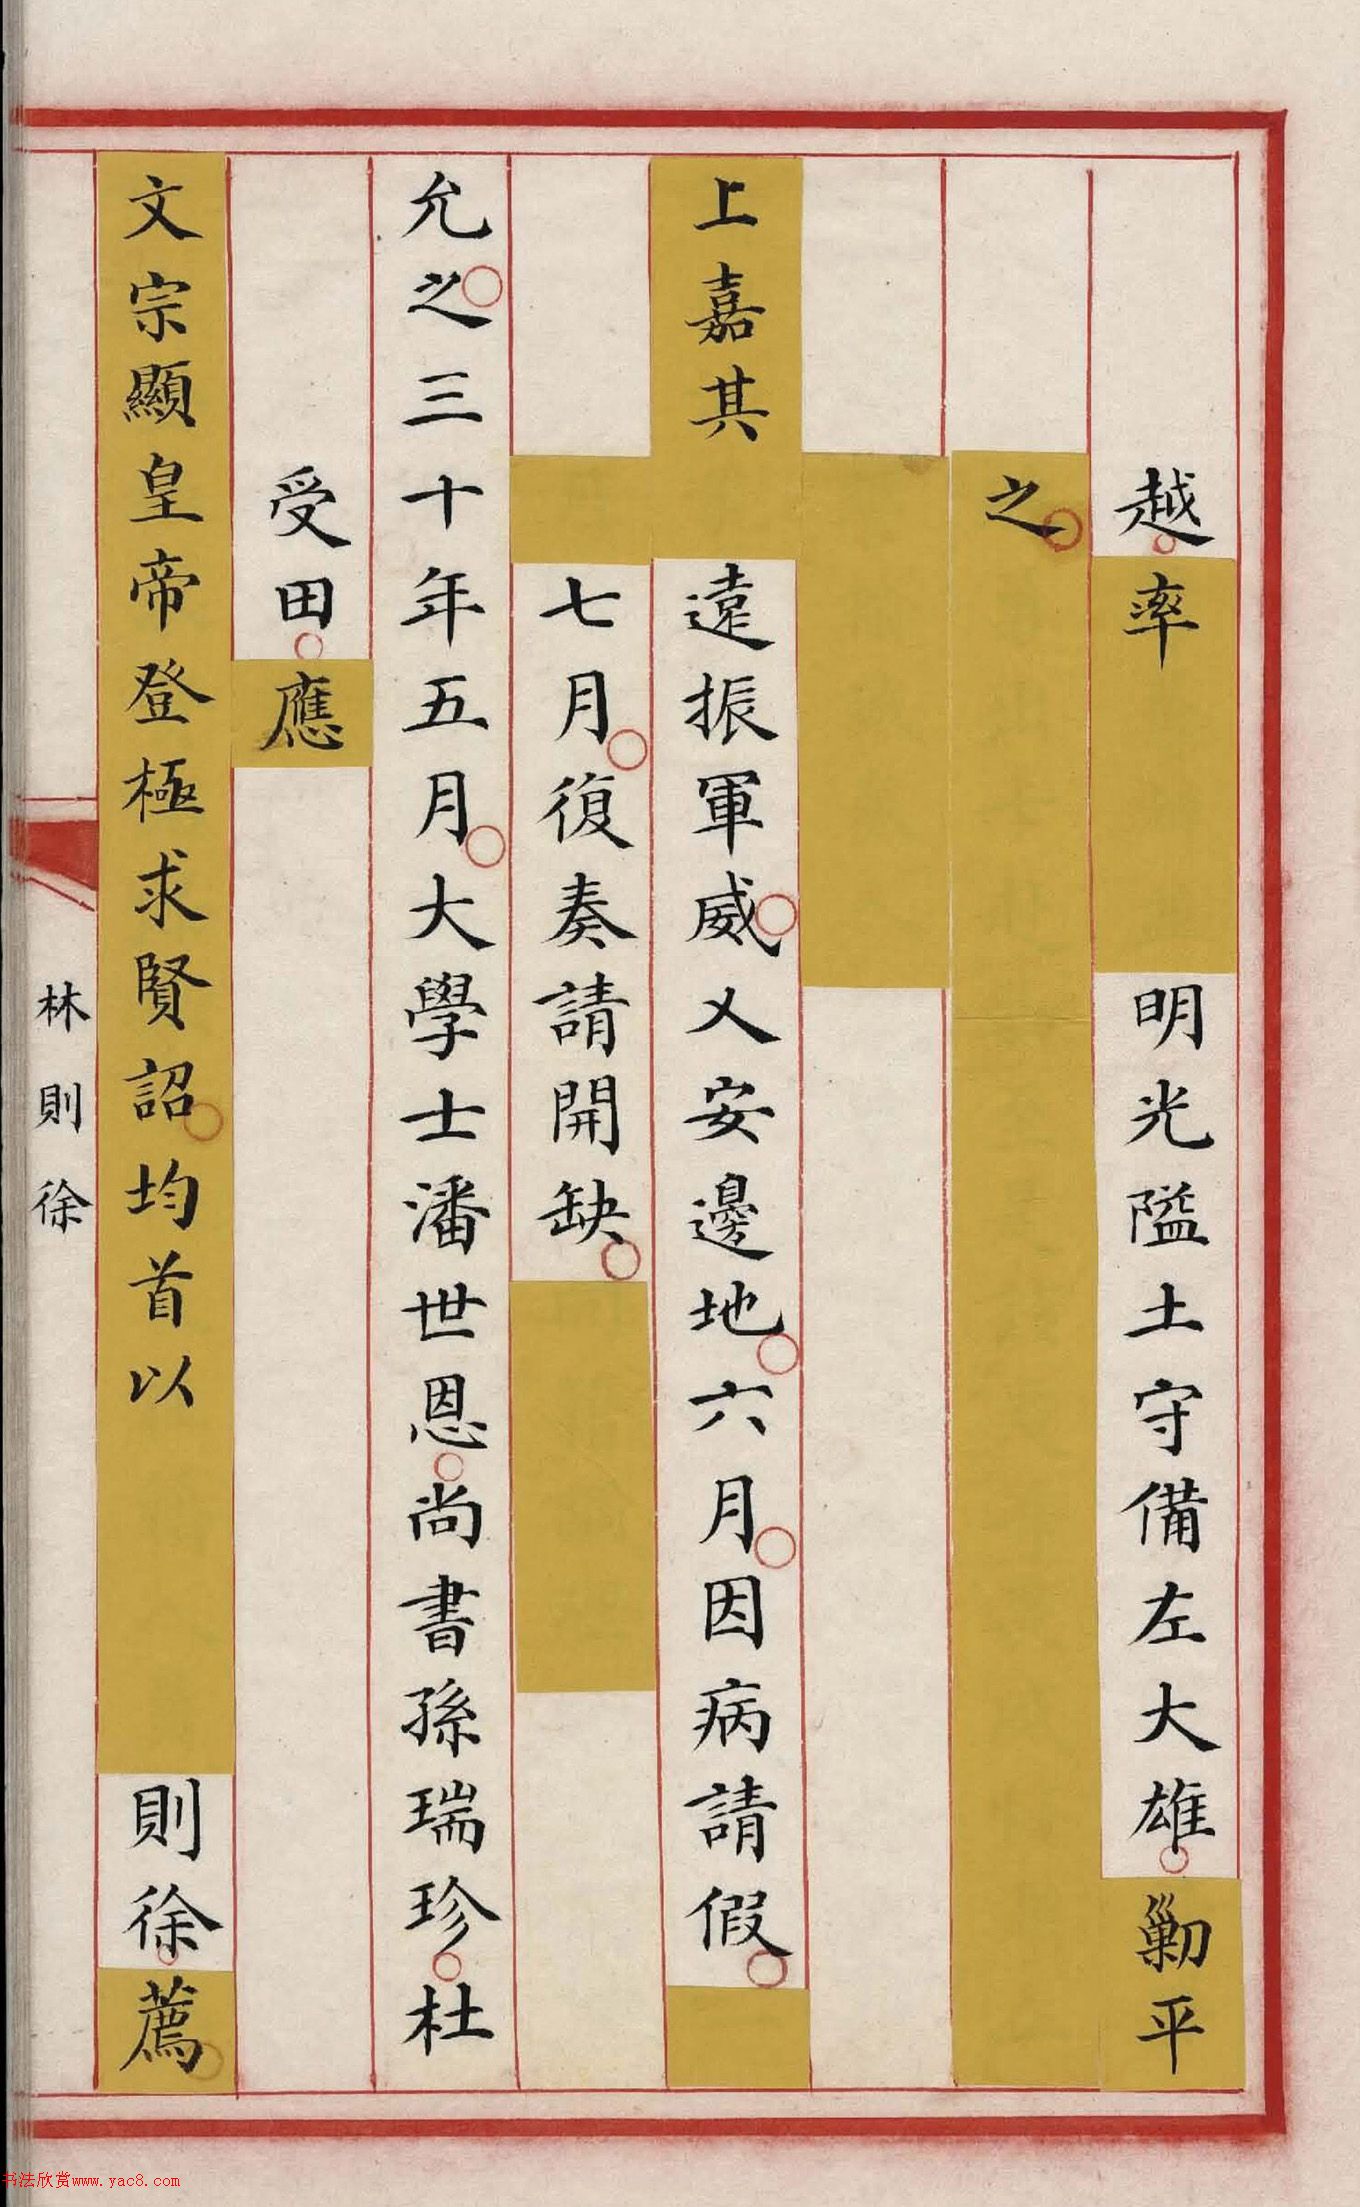 越率明光隘土守備左大雄勦平
之
上嘉其遠振軍威乂安邊地六月因病請假
七月復奏請開缺
允之三十年五月大學士潘世恩尚書孫瑞珍杜
受田應
文宗顯皇帝登極求賢詔均首以則徐薦
林則徐
书法欣赏www.yac8.com